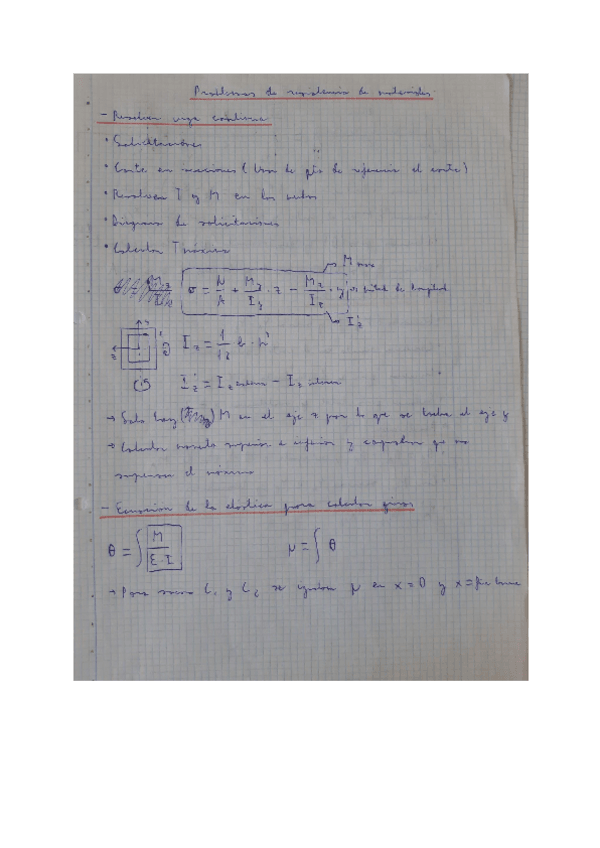 Problemas de resistencia de materiales
- Resolver viga continua
• Solicitaciones
• Corte en secciones (Uso de pto de referencia el corte)
• Resolver T y M en los nudos
• Diagrama de solicitaciones
• Calcular T máximo
M máx
σ = N/A + My/Iy · z − Mz/Iz · y
Iz'
Iz = 1/12 b · h³
Iz' = Iz externo − Iz interno
→ Solo hay M en el eje z por lo que se toma el eje y
→ Calcular momento superior e inferior y comprobar que no
superan el máximo
- Ecuación de la elástica para calcular giros
θ = ∫ M/E·I
μ = ∫ θ
→ Para sacar C1 y C2 se iguala μ en x=0 y x=